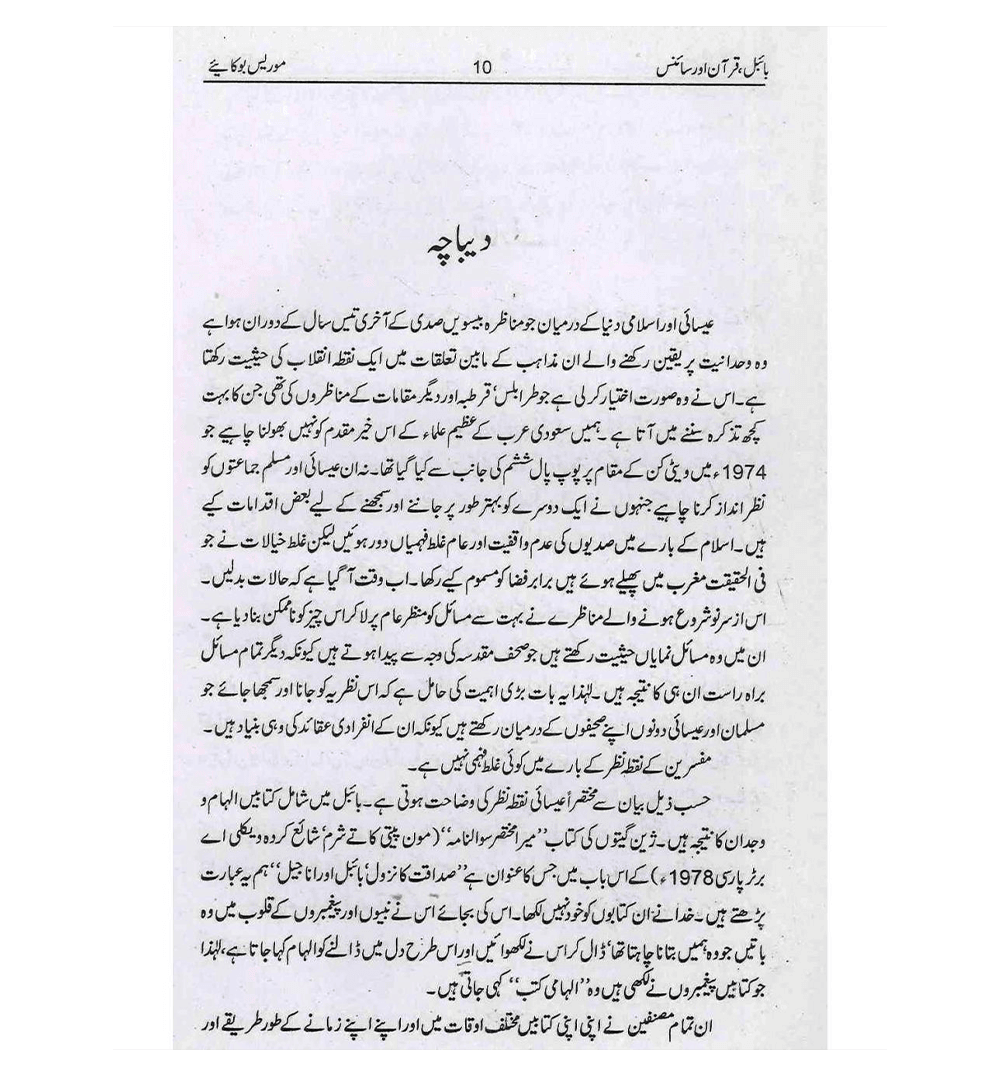 بائبل، قرآن اور سائنس
10
موریس بوکائیے
دیباچہ
عیسائی اور اسلامی دنیا کے درمیان جو مناظرہ بیسویں صدی کے آخری تیس سال کے دوران ہوا ہے
وہ وحدانیت پر یقین رکھنے والے ان مذاہب کے مابین تعلقات میں ایک نقطہ انقلاب کی حیثیت رکھتا
ہے۔ اس نے وہ صورت اختیار کر لی ہے جو طرابلس، قرطبہ اور دیگر مقامات کے مناظروں کی تھی جن کا بہت
کچھ تذکرہ سننے میں آتا ہے۔ ہمیں سعودی عرب کے عظیم علماء کے اس خیر مقدم کو نہیں بھولنا چاہیے جو
1974ء میں ویٹی کن کے مقام پر پوپ پال ششم کی جانب سے کیا گیا تھا۔ نہ ان عیسائی اور مسلم جماعتوں کو
نظر انداز کرنا چاہیے جنہوں نے ایک دوسرے کو بہتر طور پر جاننے اور سمجھنے کے لیے بعض اقدامات کیے
ہیں۔ اسلام کے بارے میں صدیوں کی عدم واقفیت اور عام غلط فہمیاں دور ہوئیں لیکن غلط خیالات نے جو
فی الحقیقت مغرب میں پھیلے ہوئے ہیں برابر فضا کو مسموم کیے رکھا۔ اب وقت آ گیا ہے کہ حالات بدلیں۔
اس از سر نو شروع ہونے والے مناظرے نے بہت سے مسائل کو منظر عام پر لا کر اس چیز کو ناممکن بنا دیا ہے۔
ان میں وہ مسائل نمایاں حیثیت رکھتے ہیں جو صحف مقدسہ کی وجہ سے پیدا ہوتے ہیں کیونکہ دیگر تمام مسائل
براہ راست ان ہی کا نتیجہ ہیں۔ لہٰذا یہ بات بڑی اہمیت کی حامل ہے کہ اس نظریہ کو جانا اور سمجھا جائے جو
مسلمان اور عیسائی دونوں اپنے صحیفوں کے درمیان رکھتے ہیں کیونکہ ان کے انفرادی عقائد کی وہی بنیاد ہیں۔
مفسرین کے نقطہ نظر کے بارے میں کوئی غلط فہمی نہیں ہے۔
حسب ذیل بیان سے مختصراً عیسائی نقطہ نظر کی وضاحت ہوتی ہے۔ بائبل میں شامل کتابیں الہام و
وجدان کا نتیجہ ہیں۔ ژین گیتوں کی کتاب ’’میرا مختصر سوالنامہ‘‘ (مون پیتی کاتے شرم‘ شائع کردہ ویکلی اے
برٹر پارسی 1978ء) کے اس باب میں جس کا عنوان ہے ’’صداقت کا نزول‘ بائبل اور اناجیل‘‘ ہم یہ عبارت
پڑھتے ہیں۔ خدا نے ان کتابوں کو خود نہیں لکھا۔ اس کی بجائے اس نے نبیوں اور پیغمبروں کے قلوب میں وہ
باتیں جو وہ ہمیں بتانا چاہتا تھا‘ ڈال کر اس نے لکھوائیں اور اس طرح دل میں ڈالنے کو الہام کہا جاتا ہے، لہٰذا
جو کتابیں پیغمبروں نے لکھی ہیں وہ ’’الہامی کتب‘‘ کہی جاتی ہیں۔
ان تمام مصنفین نے اپنی اپنی کتابیں مختلف اوقات میں اور اپنے اپنے زمانے کے طور طریقے اور